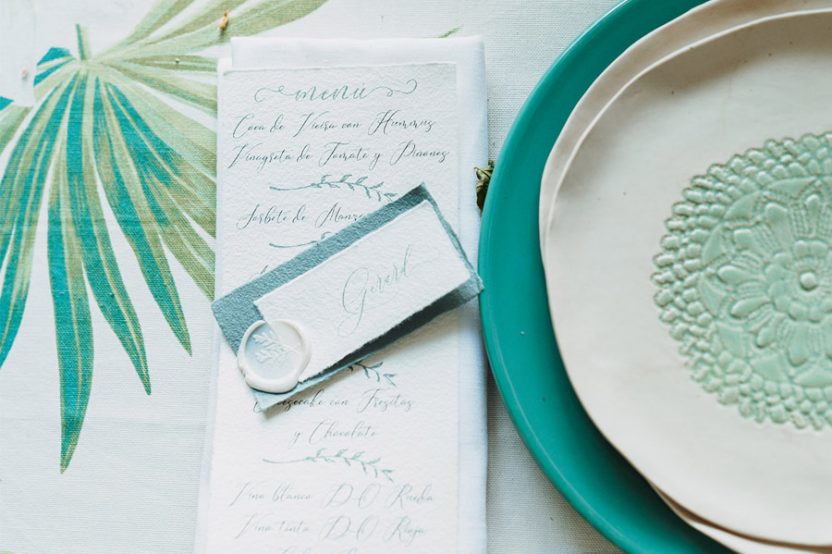 menú
Coca de Vieira con Hummus
Vinagreta de Tomate y Piñones
Sorbete de
Gerard
Cheesecake con Fresitas
y Chocolate
Vino blanco D-O Rueda
Vino tinto D-O Rioja